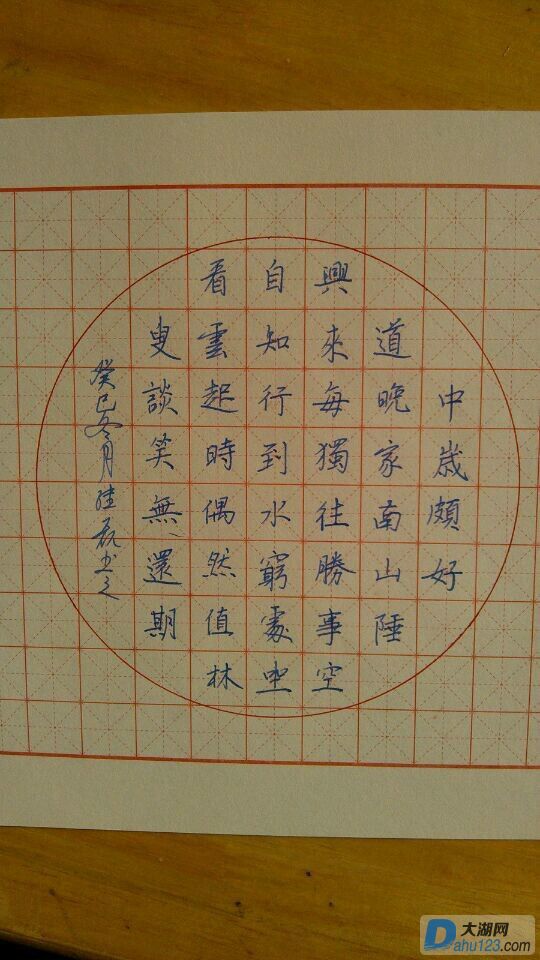 中歲頗好
道晚家南山陲
興來每獨往勝事空
自知行到水窮處坐
看雲起時偶然值林
叟談笑無還期
癸巳冬月 磊书之
大湖网
Dahu123.com